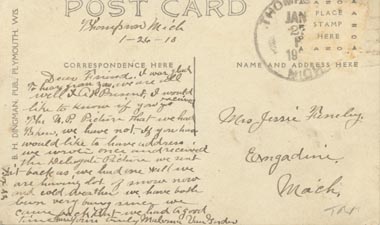 POST CARD
Thompson Mich
1-26-10
CORRESPONDENCE HERE
NAME AND ADDRESS HERE
THOMPSON
JAN
27
P
19
MICH.
PLACE
STAMP
HERE
B. H. DINGMAN, PUB., PLYMOUTH, WIS.
Dear Friend. It was
to hear from you, we are all
well at Present, I would
like to know if you
The U.P. Picture that we had
taken, we have not. If you have
would like to have address.
we wrote once and received
the Delegate Picture we sent
it back as we had one. Well we
are having lot of snow now
and cold weather. we have both
been very busy since we
came back. But we had a good
time. Yours Truly
Mrs. Jessie
Engadine,
Mich.